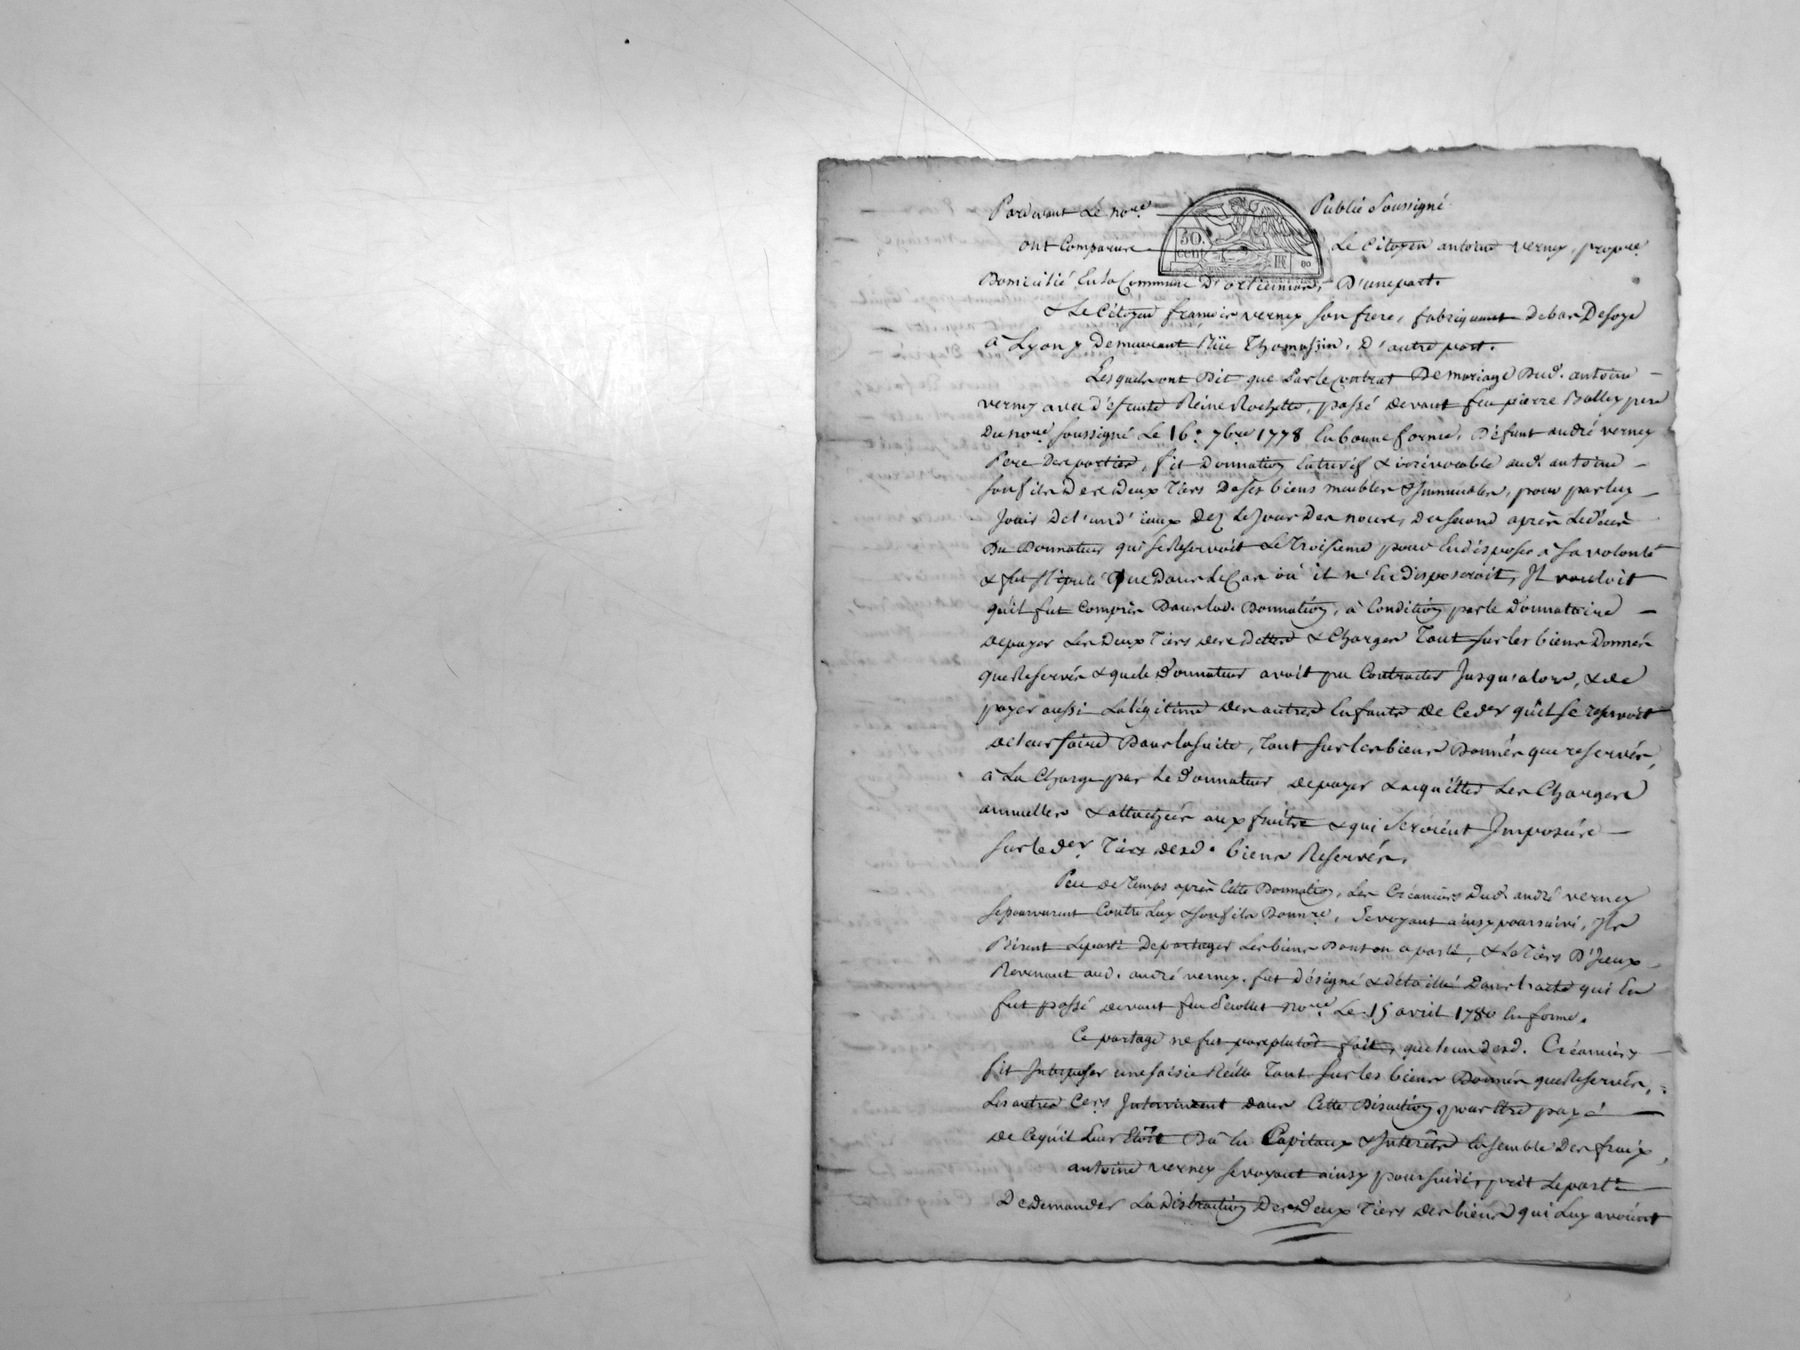 Pardevant Le no.re Public Soussigné
ont Comparu Le Citoyen antoine verney, propre.
50. cen. RF 80
Domicilié En la Commune D' , D'une part.
& Le Citoyen françois verney son frere, fabriquant de bas De soye
à Lyon y Demeurant Rüe Thomassin, D'autre part.
Lesquels ont Dit que Par le contrat De mariage Dud. antoine
verney avec d'efunte Reine Rochette, passé devant feu pierre Balley pere
Du no.re soussigné Le 16.e 7bre 1778 En bonne forme, Défunt andré verney
Pere Des parties, fit Donnation Entrevif & irrévocable aud. antoine
son fils Des Deux Tiers De ses biens meubles & Immeubles, pour par luy
Jouir De l'un d'iceux Dez Le Jour Des noces, Du second après Le Décès
Du Donnateur qui se Reservoit Le Troisieme pour En disposer à sa volonté
& fut stipulé Que Dans Le Cas où il n'En disposeroit, Il vouloit
qu'il fut compris Dans lad. Donnation, à Condition par le Donnataire
De payer Les Deux Tiers des Dettes & Charges Tout sur les biens Donnés
que Reservés & que le Donnateur avoit pu Contracter Jusqu'alors, & de
payer aussi La légitime des autres Enfants De Ce der qu'il se reservoit
de leur faire Dans la suite, Tout sur les biens Donnés que reservés,
à La Charge par Le Donnateur De payer & acquitter Les Charges
annuelles & attachées aux fruits & qui seroient Imposées
sur le der Tiers desd. biens Reservés.
Peu de Temps après Cette Donnation, Les Créanciers Dud. andré verney
se pourvurent Contre Luy & son fils Donnre. Se voyant ainsy poursuivi, Ils
Prirent Le parti De partager Les biens Dont on a parlé, & Le Tiers D'Iceux
Revenant aud. andré verney fut désigné & détaillé Dans l'acte qui En
fut passé devant feu no.re Le 15 avril 1780 En forme.
Ce partage ne fut pas plutôt fait, que l'un desd. Créanciers
fit une saisie Réelle Tout sur les biens Donnés que Reservés,
Les autres Cers Intervinrent dans Cette Discution pour être payé
De Ce qu'il Leur Etoit Dû En Capitaux & Interêts Ensemble Des fraix,
antoine verney se voyant ainsy poursuivi, prit Le parti
De demander La Distraction Des Deux Tiers des biens qui Luy avoient